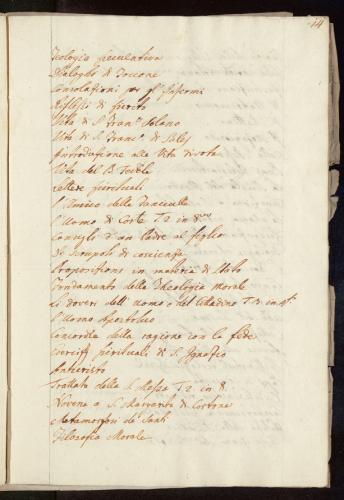 14
Teologia speculativa
Dialoghi di Foccone
Consolazioni per gl'Infermi
Riflessi di spirito
Vita di S. Fran.º Solano
Vita di S. Fran.º di Sales
Introduzione alla Vita divota
Vita del B.
Lettere spirituali
L'Amico delle Fanciulle
L'Uomo di Corte T. 2 in 8.vo
Consigli d'un Padre al figlio
Lo scrupolo di coscienza
Proposizioni in materia di Stato
Fondamento della Theologia Morale
Li doveri dell'Uomo e del Cittadino T. in 4º
L'Uomo Apostolico
Concordia della ragione con la fede
Esercizj spirituali di S. Ignazio
Antecristo
Trattato della S. Messa T. 2 in 8.
Novena a S. Margarita di Cortona
Metamorfosi de' Santi
Filosofia Morale